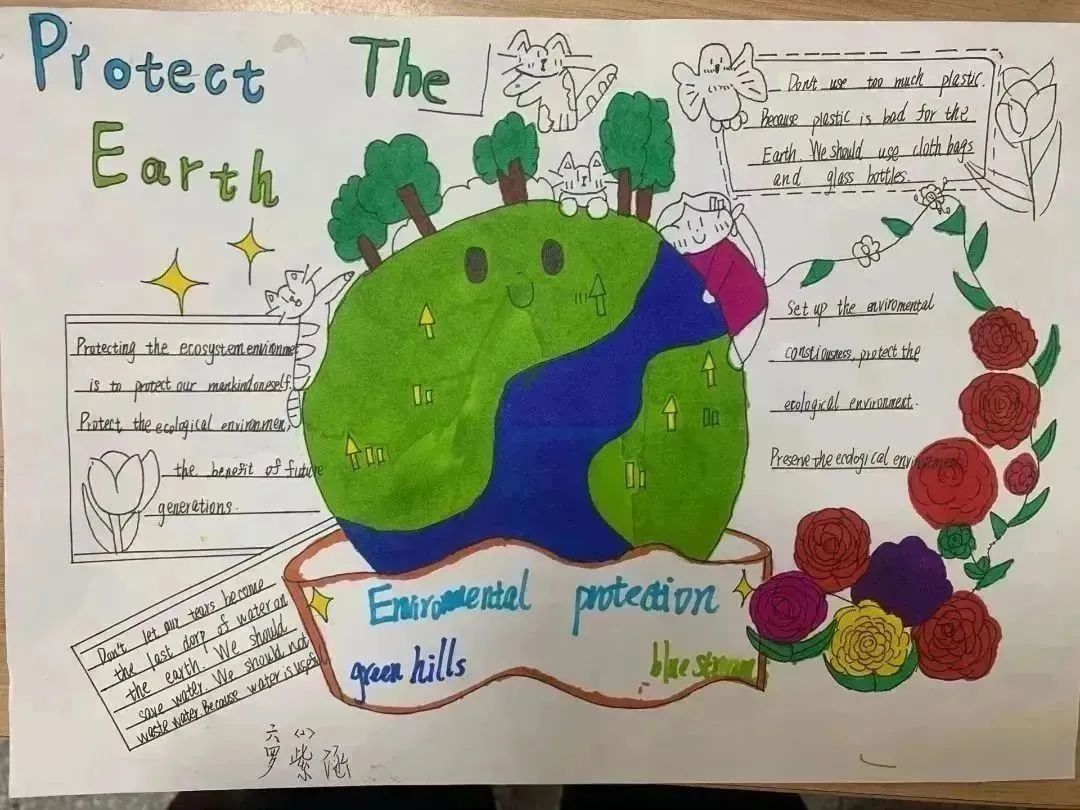 Protect The
Earth
Don't use too much plastic.
Because plastic is bad for the
Earth. We should use cloth bags
and glass bottles.
Protecting the ecosystem environme
is to protect our mankind oneself.
Protect the ecological environmen,
the benefit of future
generations.
Set up the enviromental
constiousness, protect the
ecological environment.
Preserve the ecological environment
Don't let our tears become
the last dorp of water on
the earth! We should
save water. We should not
waste water. Because water is useful
Enviromental protection
green hills
blue stream
六〈八〉
罗紫涵